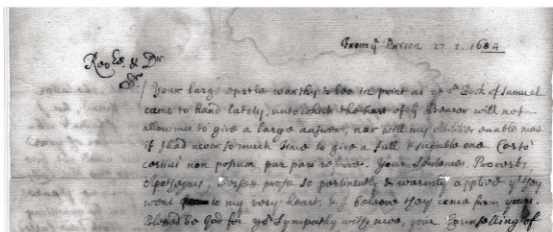 From yͤ Prison 27. 1. 1684
Revᵈ & Dʳ
Sʳ
Your large epistle worthy to bee in print as yͤ Book of Samuel
came to hand lately, unto which the hast of yͤ Bearer will not
allow me to give a large answer, nor will my Abilities enable mee
if I had never so much time to give a full & suitable one
non possum par pari Your Sentences Proverbs
Apothegms, Verses prose so pertinently & warmly applied yᵗ they
went to my very heart, & I beleeve they came from yours.
Blessed be God for yoʳ Sympathy with mee, your Counselling of